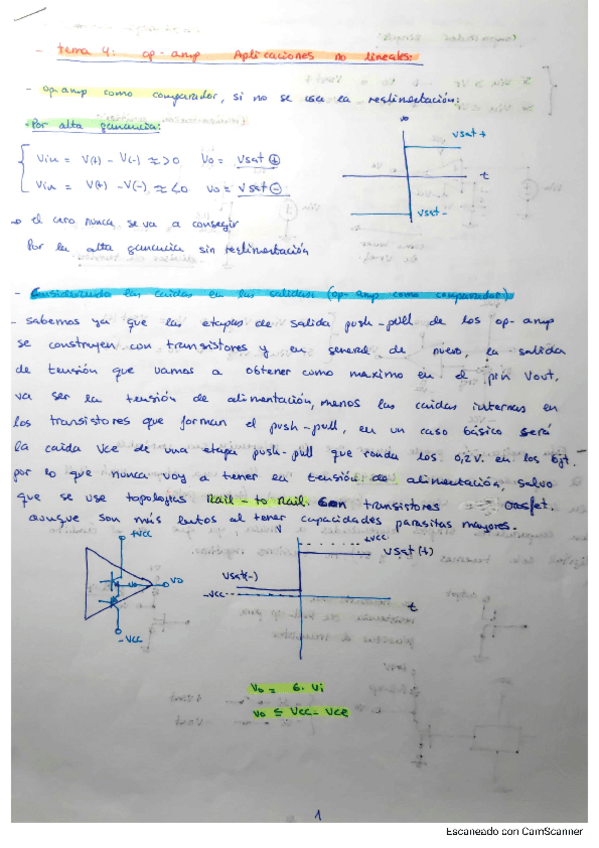 - tema 4: op-amp Aplicaciones no lineales:
- op amp como comparador, si no se usa la realimentación:
· Por alta ganancia:
Vin = V(+) - V(-) ≈ >0 Vo = Vsat ⊕
Vin = V(+) - V(-) ≈ <0 Vo = Vsat ⊖
vo
Vsat+
t
Vsat-
→ el cero nunca se va a conseguir
Por la alta ganancia sin realimentación
- Considerando las caidas en las salidas (op-amp como comparador)
- sabemos ya que las etapas de salida push-pull de los op-amp
se construyen con transistores y en general de nuevo, la salida
de tensión que vamos a obtener como maximo en el pin Vout,
va ser la tensión de alimentación, menos las caidas internas en
los transistores que forman el push-pull, en un caso básico será
la caida Vce de una etapa push-pull que ronda los 0,2V. en los bjt.
por lo que nunca voy a tener en tensión de alimentación, salvo
que se use topologias Rail-to Rail. Con transistores mosfet.
aunque son más lentos al tener capacidades parasitas mayores.
+Vcc
Vo
VO
-Vcc
V
+Vcc
Vsat(+)
Vsat(-)
-Vcc
t
Vo = G· Vi
Vo ≤ Vcc - Vce
1
Escaneado con CamScanner